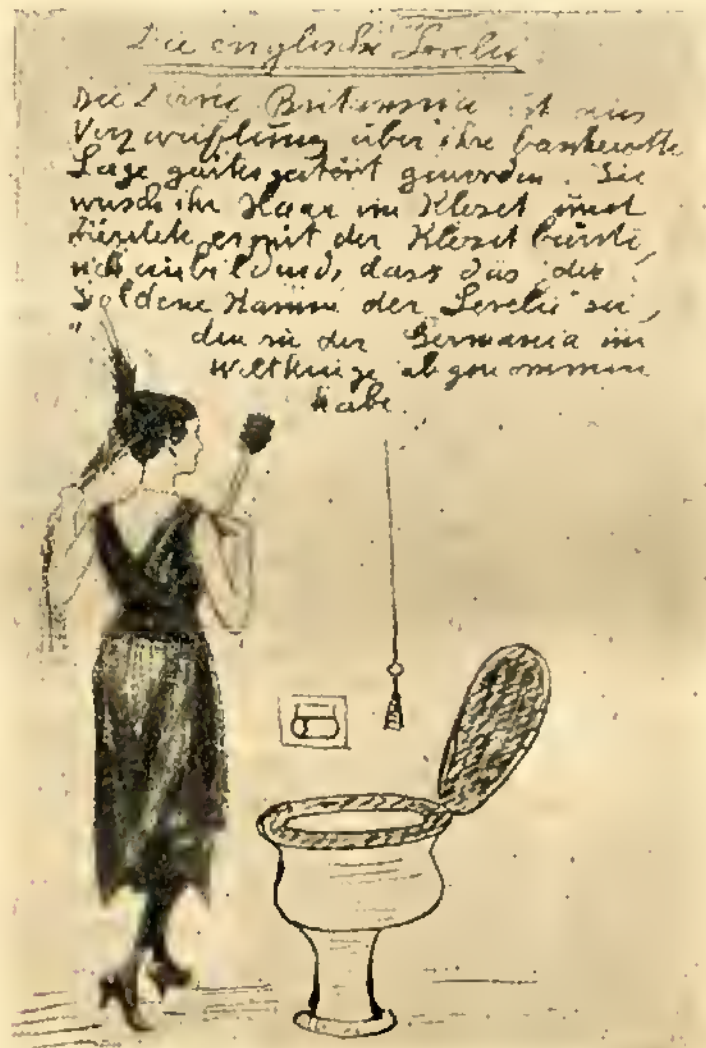 Die englische Lorelei
Die Dirne Britannia ist aus
Verzweiflung über ihre bankerotte
Lage geistesgestört geworden. Sie
wusch ihr Haar im Kloset und
es mit der Klosetbürste,
sich einbildend, dass das der
"goldene Kamm der Lorelei" sei,
den sie der Germania im
Weltkriege abgenommen
habe.